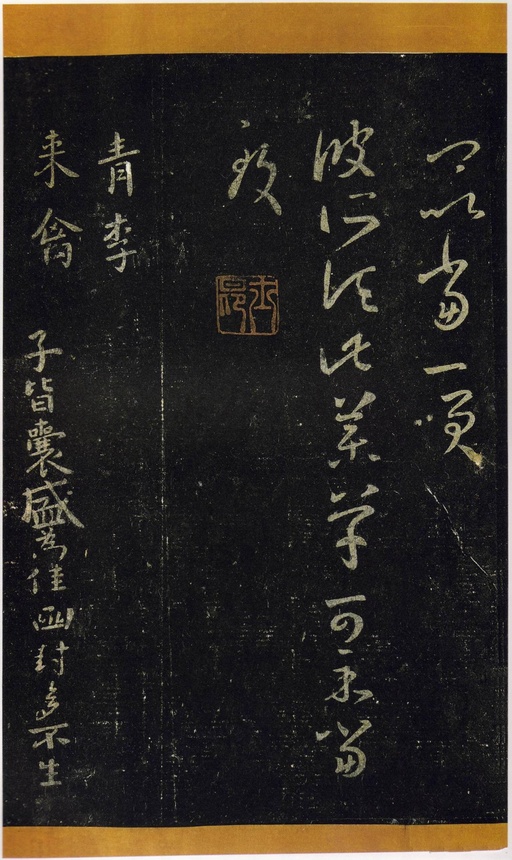 卿以當一咲
彼所須此藥草可示當
致
青李
来禽 子皆囊盛為佳函封多不生